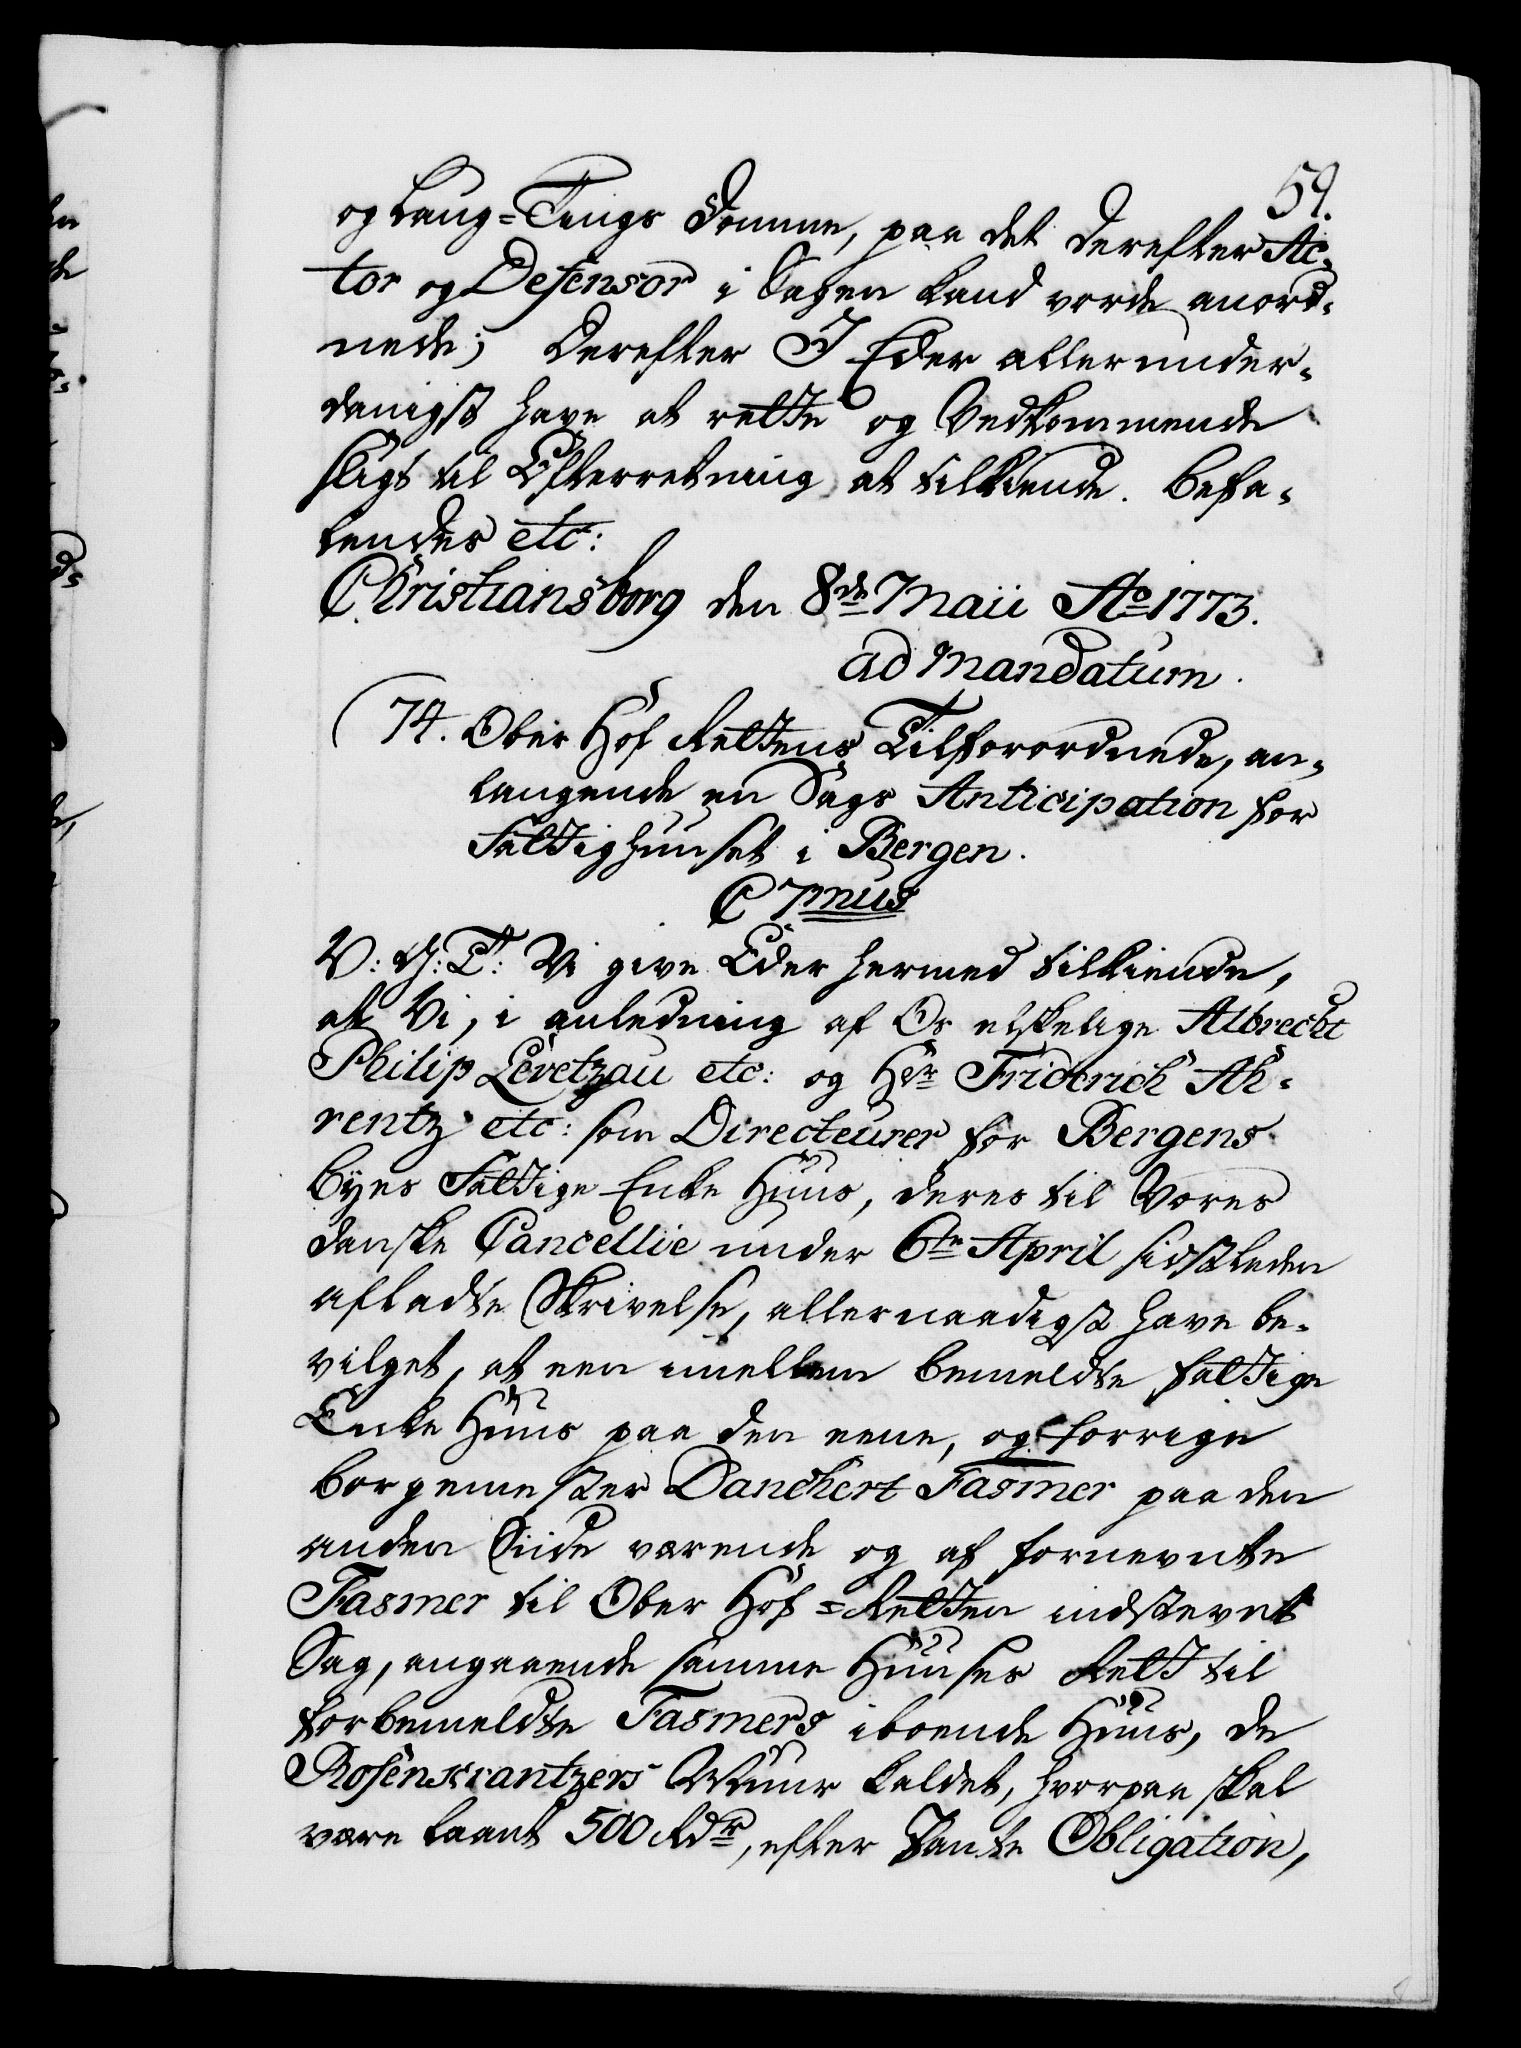 59.
og Laug=Tings Domme, paa det derefter Ac-
tor og Defensor i Sagen kand vorde anord-
nede; derefter I Eder allerunder-
danigst have at rette og Vedkommende
sligt til Efterretning at tilkiende. Befa-
lendes etc:
Christiansborg den 8de Maii Ao 1773.
ad Mandatum.
74. Ober Hof Rettens Tilforordnede, an-
langende en Sags Anticipation for
Fattighuuset i Bergen.
C 7mus
V: G: T: Vi give Eder hermed tilkiende,
at Vi, i anledning af Os elskelige Albrecht
Philip Levetzau etc: og Hr Friderich Ah-
rentz etc: som Directeurer for Bergens
Byes Fattige Enke Huus, deres til Vores
danske Cancellie under 6te April sidstleden
afladte Skrivelse, allernaadigst have be-
vilget, at een imellem bemeldte Fattige
Enke Huus paa den eene, og forrige
Borgemester Danchert Fasmer paa den
anden Siide værende og af fornevnte
Fasmer til Ober Hof=Retten indstevnt
Sag, angaaende samme Huuses Rett til
forbemeldte Fasmers iboende Huus, de
Rosenkrantzers Muur kaldet, hvorpaa skal
være laant 500 Rdr, efter Pante Obligation,